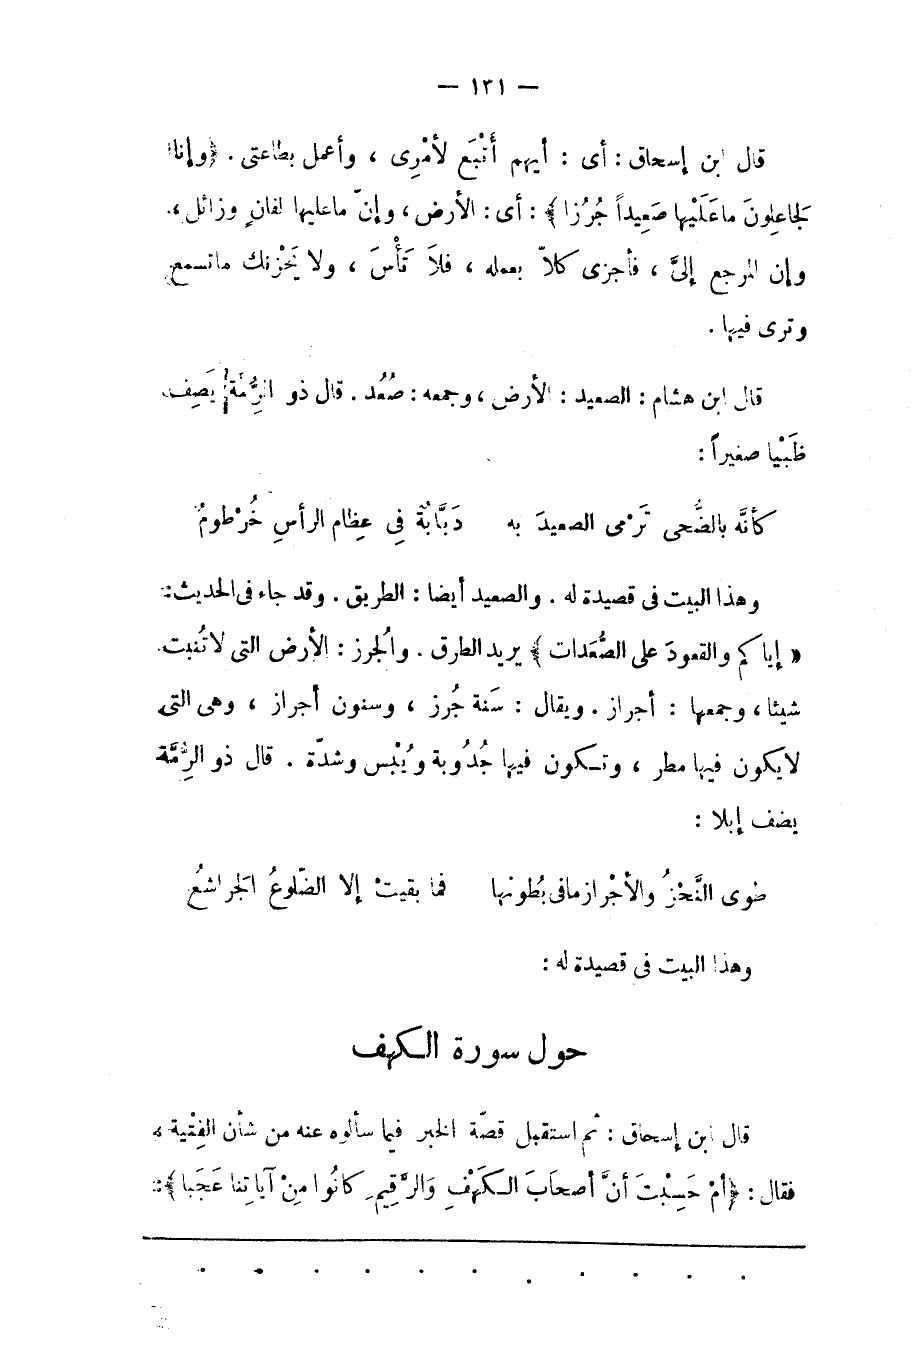 — ١٣١ —
قال ابن إسحاق : أى : أيهم أَتْبَع لأمْرِى ، وأعمل بطاعتى . ﴿وإنا
لجَاعِلونَ ماعَلَيْها صَعِيداً جُرُزا﴾ : أى : الأرض ، وإنّ ماعليها لفانٍ وزائل ،
وإن المرجع إلىَّ ، فأجزى كلاّ بعمله ، فلاَ تَأْسَ ، ولا يَحْزنك ماتسمع
وترى فيها .
قال ابن هشام : الصعيد : الأرض ، وجمعه : صُعُد . قال ذو الرِّمَّة يَصِف
ظَبْيا صغيراً :
كأنَّه بالضُّحى تَرْمى الصعيدَ به دَبَّابَةٌ فِى عِظام الرأسِ خُرْطومُ
وهذا البيت فى قصيدة له . والصعيد أيضا : الطريق . وقد جاء فى الحديث :
« إياكم والقعودَ على الصُّعَدات ﴾ يريد الطرق . والُجرز : الأرض التى لاتُنبت
شيئا ، وجمعها : أجراز . ويقال : سَنة جُرز ، وسنون أجراز ، وهى التى
لايكون فيها مطر ، وتكون فيها جُدُوبة ويُبْس وشدّة . قال ذو الرُّمَّة
يضف إبلا :
طوى النَّحْزُ والأجْرازمافى بُطونها فما بقيتْ إلا الضّلوعُ الجَراشعُ
وهذا البيت فى قصيدة له :
حول سورة الكهف
قال ابن إسحاق : ثم استقبل قصّة الخبر فيما سألوه عنه من شأن الفِتْية ،
فقال : ﴿أمْ حَسِبْتَ أنَّ أصحاَبَ الكَهْفِ وَالرَّقِيمِ كانُوا مِنْ آياتِنا عَجَبا﴾ :